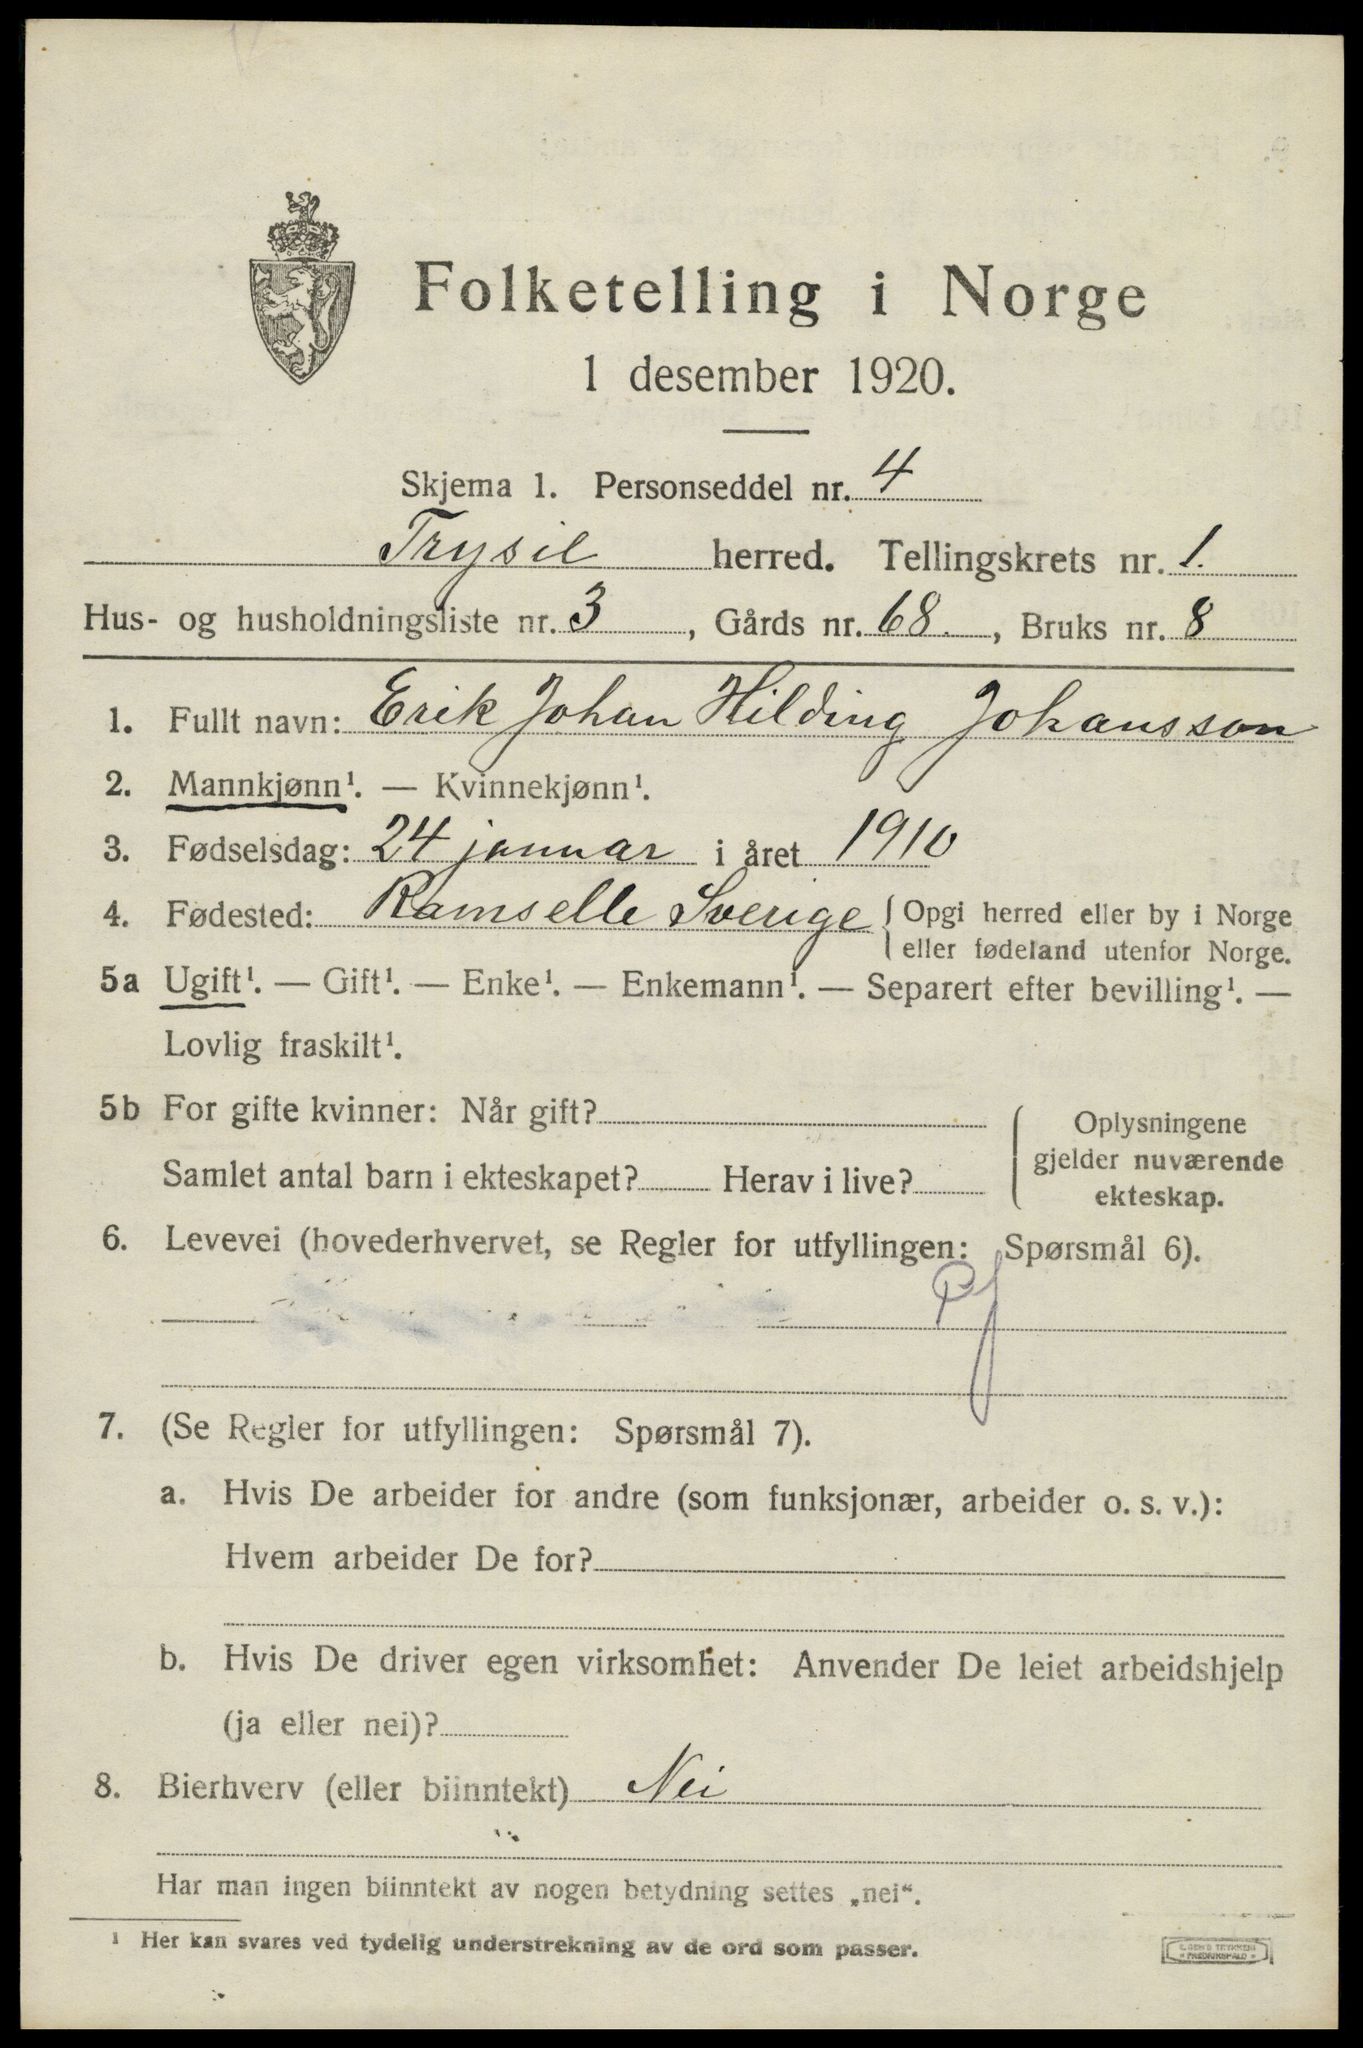 Folketelling i Norge
1 desember 1920.
Skjema 1. Personseddel nr. 4
Trysil herred. Tellingskrets nr. 1.
Hus- og husholdningsliste nr. 3, Gårds nr. 68., Bruks nr. 8
1. Fullt navn: Erik Johan Hilding Johansson
2. Mannkjønn¹. — Kvinnekjønn¹.
3. Fødselsdag: 24 januar i året 1910
4. Fødested: Ramselle Sverige { Opgi herred eller by i Norge
eller fødeland utenfor Norge.
5a Ugift¹. — Gift¹. — Enke¹. — Enkemann¹. — Separert efter bevilling¹. —
Lovlig fraskilt¹.
5b For gifte kvinner: Når gift?
Samlet antal barn i ekteskapet? Herav i live?
Oplysningene
gjelder nuværende
ekteskap.
6. Levevei (hovederhvervet, se Regler for utfyllingen: Spørsmål 6).
7. (Se Regler for utfyllingen: Spørsmål 7).
a. Hvis De arbeider for andre (som funksjonær, arbeider o. s. v.):
Hvem arbeider De for?
b. Hvis De driver egen virksomhet: Anvender De leiet arbeidshjelp
(ja eller nei)?
8. Bierhverv (eller biinntekt) Nei
Har man ingen biinntekt av nogen betydning settes „nei“.
¹ Her kan svares ved tydelig understrekning av de ord som passer.